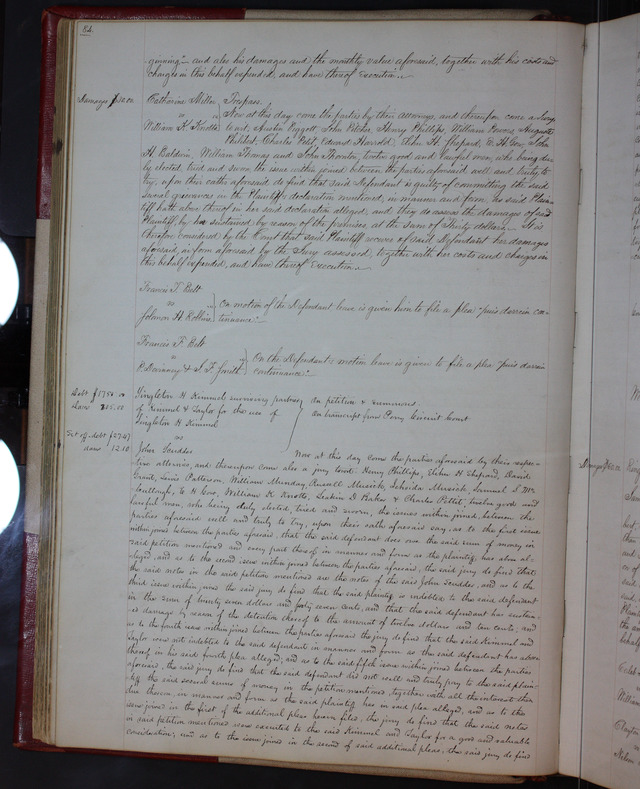 84
ginning" and also his damages and the monthly value aforesaid, together with his costs and
charges in this behalf expended, and have thereof execution.
Damages $30.00
Catharine Miller
vs
William K Knotts
Trespass.
Now at this day come the parties by their attorneys, and thereupon come a Jury
to wit, Austin Piggott, John Pitcher, Henry Phillips, William Powers, Augusta
Philibert, Charles Pettit, Edward Harrold, John H. Shepard, E. H. Cox, John
H. Baldwin, William Thomas and John Thornton, twelve good and lawful men, who being du-
ly elected, tried and sworn the issue within joined between the parties aforesaid well and truly to
try, upon their oaths aforesaid, do find that said Defendant is guilty of committing the said
several grievances in the Plaintiff's declaration mentioned, in manner and form as said Plain-
tiff hath above thereof in her said declaration alleged, and they do assess the damages of said
Plaintiff, by her sustained by reason of the premises at the sum of thirty dollars. It is
therefore considered by the Court that said Plaintiff recover of said Defendant her damages
aforesaid, in form aforesaid by the Jury assessed, together with her costs and charges in
this behalf expended, and have thereof execution.
Francis T. Belt
vs
Johnson H. Robbins
On motion of the Defendant leave is given him to file a plea "puis darrein con-
tinuance."
Francis T. Belt
vs
& S. F. Smith
On the Defendants motion leave is given to file a plea "puis darrein
continuance."
Debt $1750.00
Singleton H Kimmel surviving partner
of Kimmel & Taylor for the use of
Singleton H Kimmel
vs
John Scudder
Set off debt $27.47
dam 12.10
On petition & summons
on transcript from Perry Circuit Court
Now at this day come the parties aforesaid by their respec-
tive attornies, and thereupon come also a jury towit: Henry Phillips, John H. Shepard, David
Grant, Lewis Patterson, William Munday, Russell Messick, Samuel S. Mc
E H Cox, William K Knotts, Baker & Charles Pettit, twelve good and
lawful men, who being duly elected, tried and sworn, the issues within joined, between the
parties aforesaid well and truly to try, upon their oaths aforesaid say, as to the first issue
within joined between the parties aforesaid, that the said defendant does owe the said sum of money in
said petition mentioned and every part thereof in manner and form as the plaintiff has above al-
leged, and as to the second issue within joined between the parties aforesaid, the said jury do find that
the said notes in the said petition mentioned are the notes of the said John Scudder, and as to the
third issue within joined the said jury do find that the said plaintiff is indebted to the said defendant
in the sum of twenty seven dollars and forty seven cents, and that the said defendant has sustain-
ed damage by reason of the detention thereof to the amount of twelve dollars and ten cents, and
as to the fourth issue within joined between the parties aforesaid the jury do find that the said Kimmel and
Taylor were not indebted to the said defendant in manner and form as the said defendant has above
thereof in his said fourth plea alleged; and as to the said fifth issue within joined between the parties
aforesaid, the said jury do find that the said defendant did not well and truly pay to the said plain-
tiff the said several sums of money in the petition mentioned, together with all the interest then
due thereon, in manner and form as the said plaintiff has in said plea alleged, and as to the
issue joined in the first of the additional pleas herein filed, the jury do find that the said notes
in said petition mentioned were executed to the said Kimmel and Taylor for a good and valuable
consideration; and as to the issue joined in the second of said additional pleas, the said jury do find